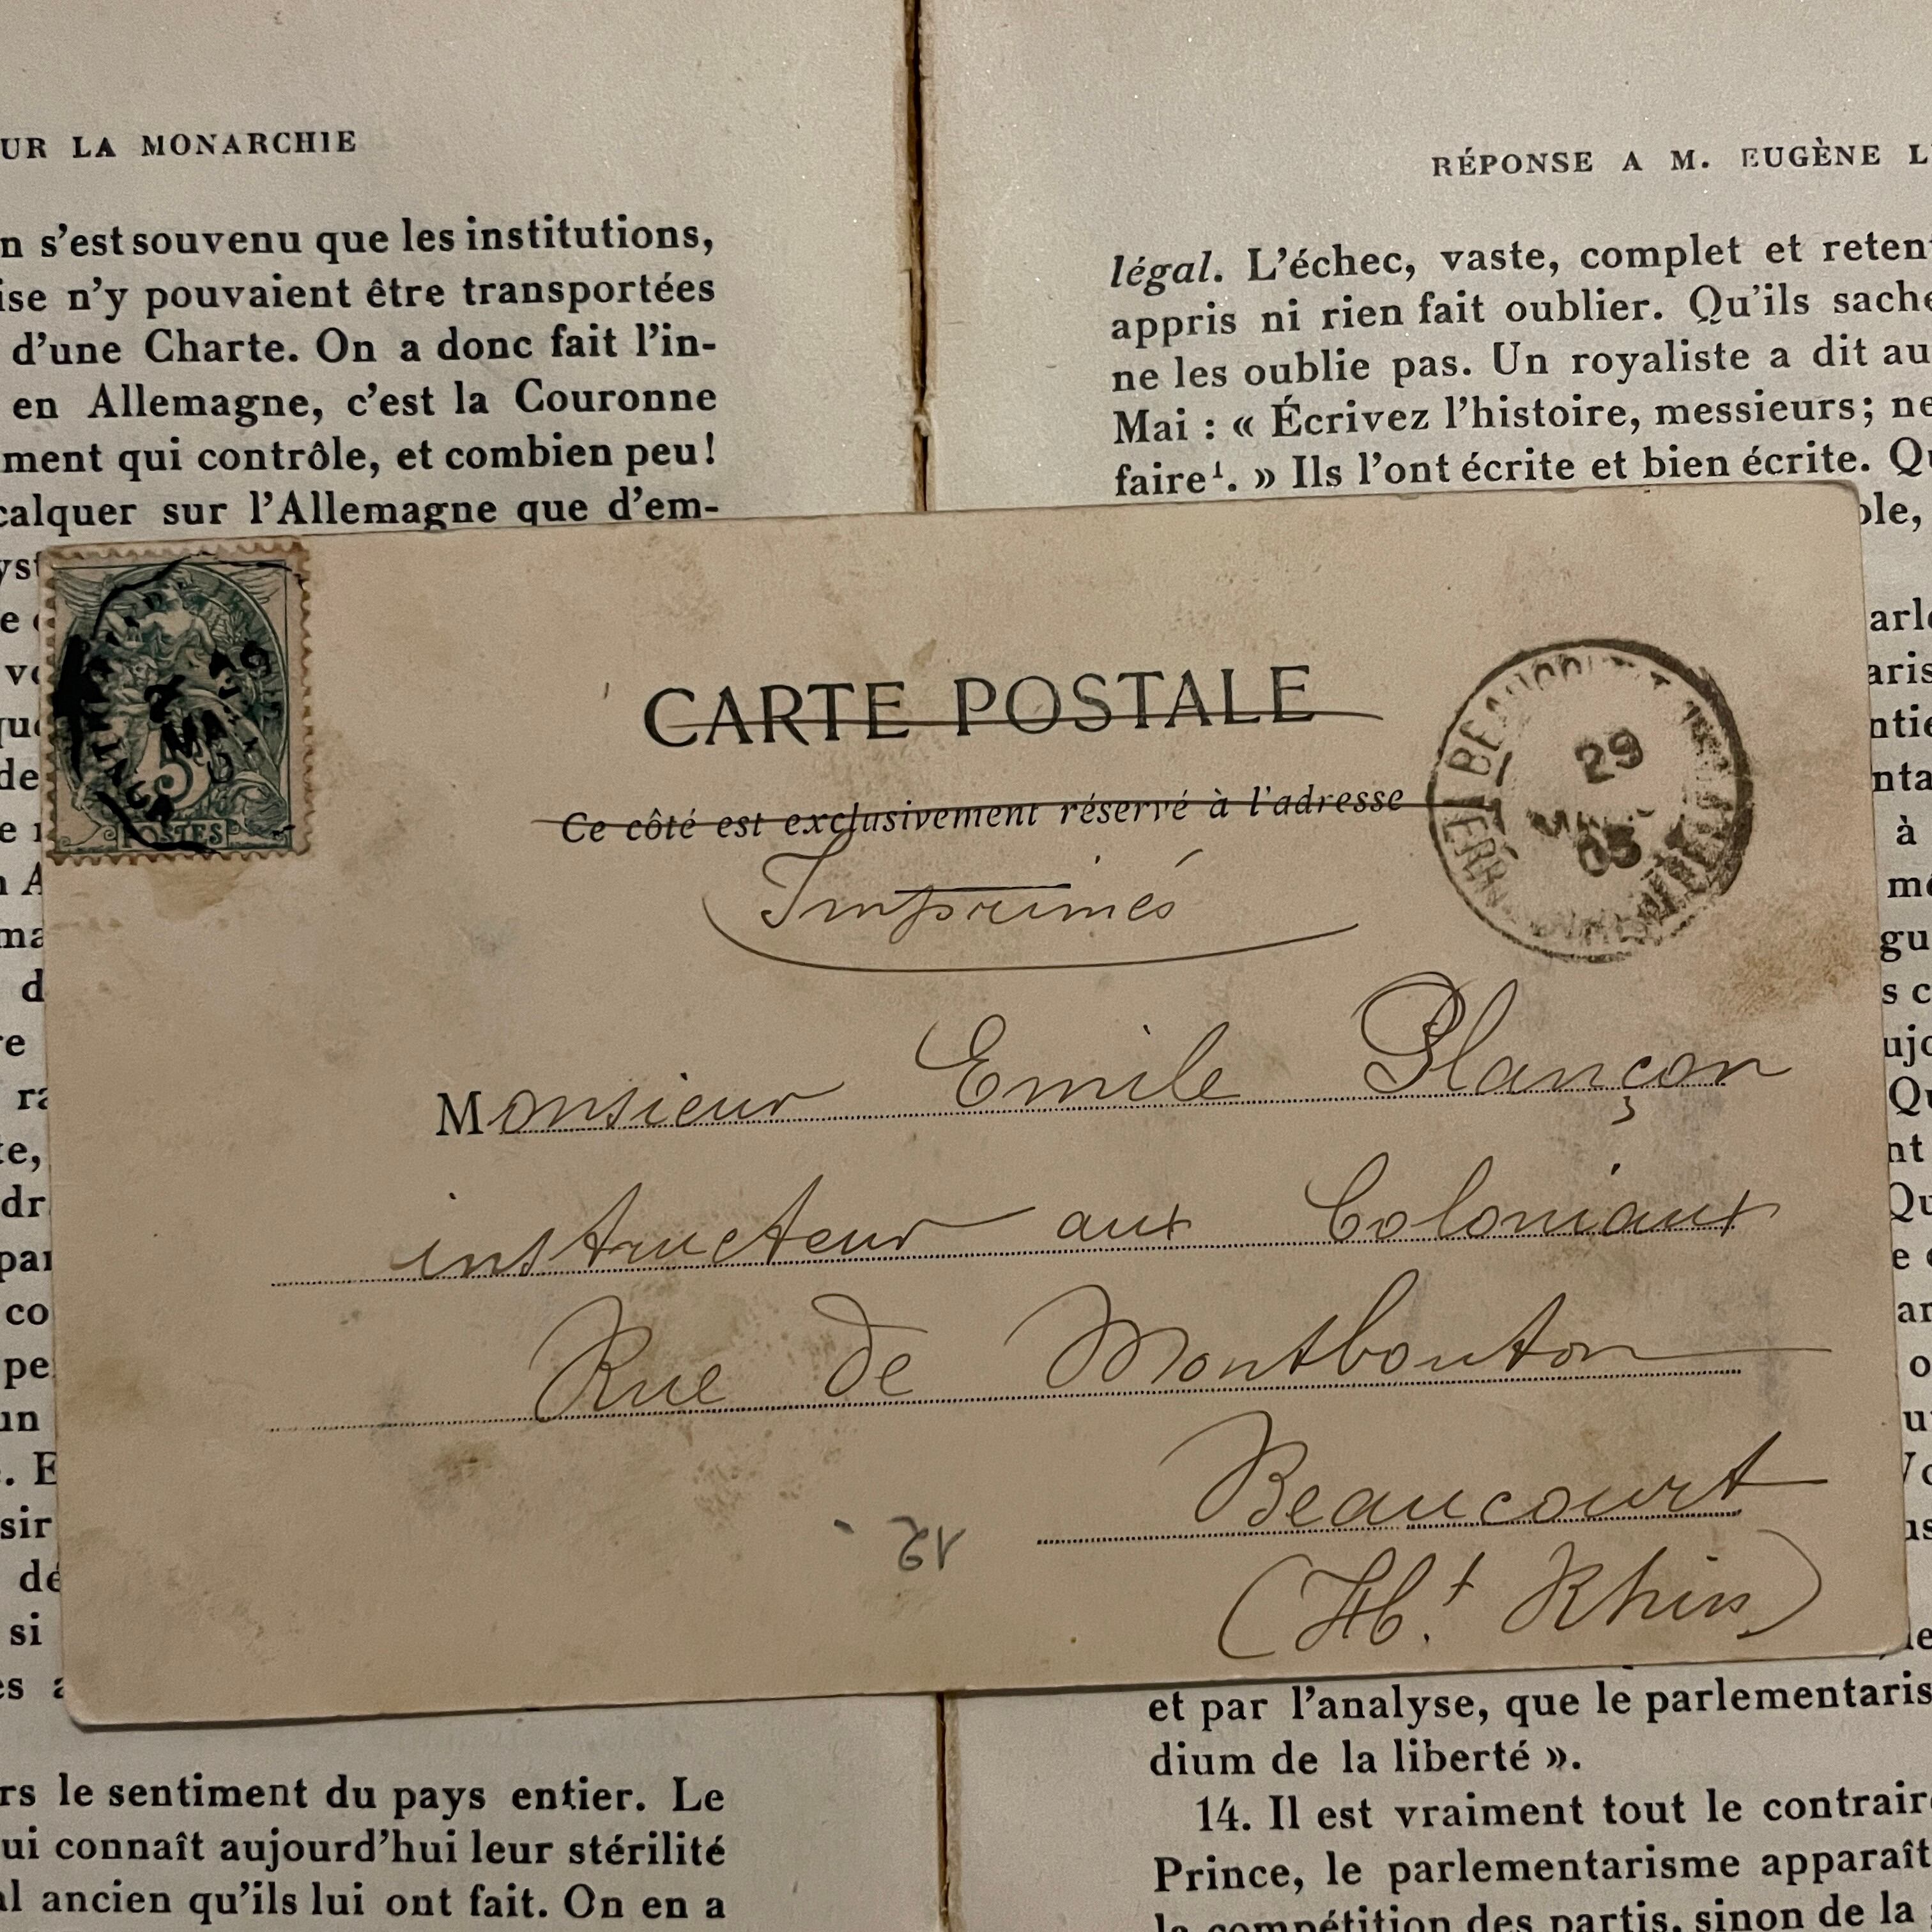 UR LA MONARCHIE
n s'est souvenu que les institutions,
ise n'y pouvaient être transportées
d'une Charte. On a donc fait l'in-
en Allemagne, c'est la Couronne
ment qui contrôle, et combien peu!
calquer sur l'Allemagne que d'em-
RÉPONSE A M. EUGÈNE L
légal. L'échec, vaste, complet et reten
appris ni rien fait oublier. Qu'ils sache
ne les oublie pas. Un royaliste a dit au
Mai : « Écrivez l'histoire, messieurs; ne
faire¹. » Ils l'ont écrite et bien écrite. Qu
POSTES
CARTE POSTALE
Ce côté est exclusivement réservé à l'adresse
BEAUCOURT
29
05
Imprimés
Monsieur Emile Plançon
instructeur aux Coloniaux
Rue de Montbouton
Beaucourt
(Ht. Rhin)
12
et par l'analyse, que le parlementaris
dium de la liberté ».
14. Il est vraiment tout le contrair
Prince, le parlementarisme apparaît
la compétition des partis, sinon de la
rs le sentiment du pays entier. Le
ui connaît aujourd'hui leur stérilité
al ancien qu'ils lui ont fait. On en a